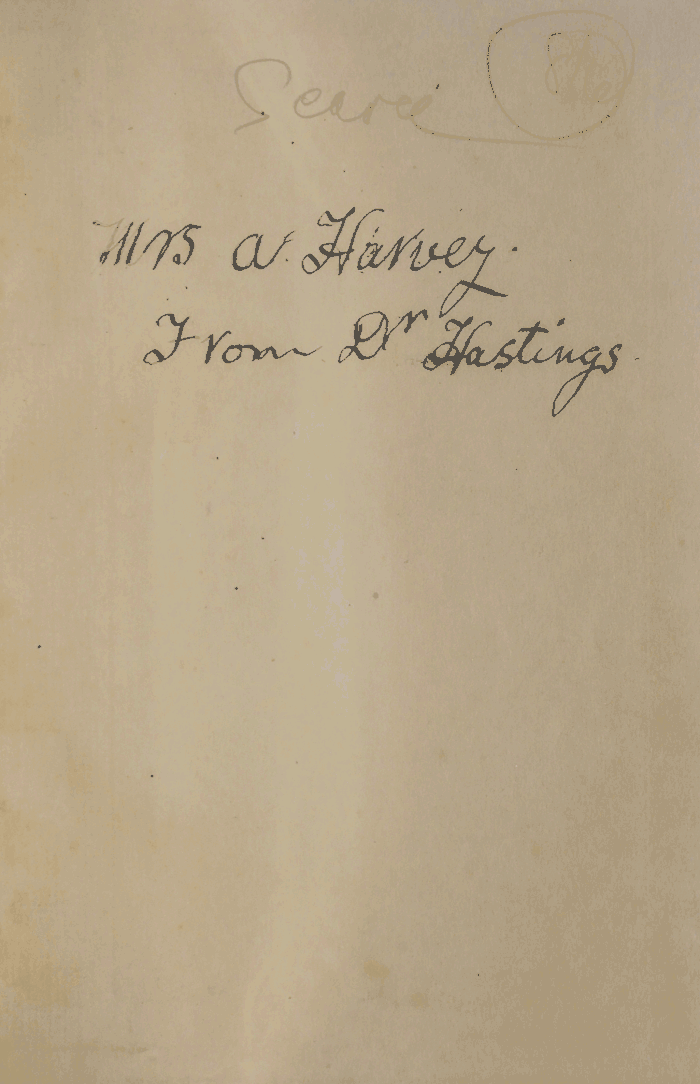 Scarce
Mrs A. Harvey.
From Dr Hastings